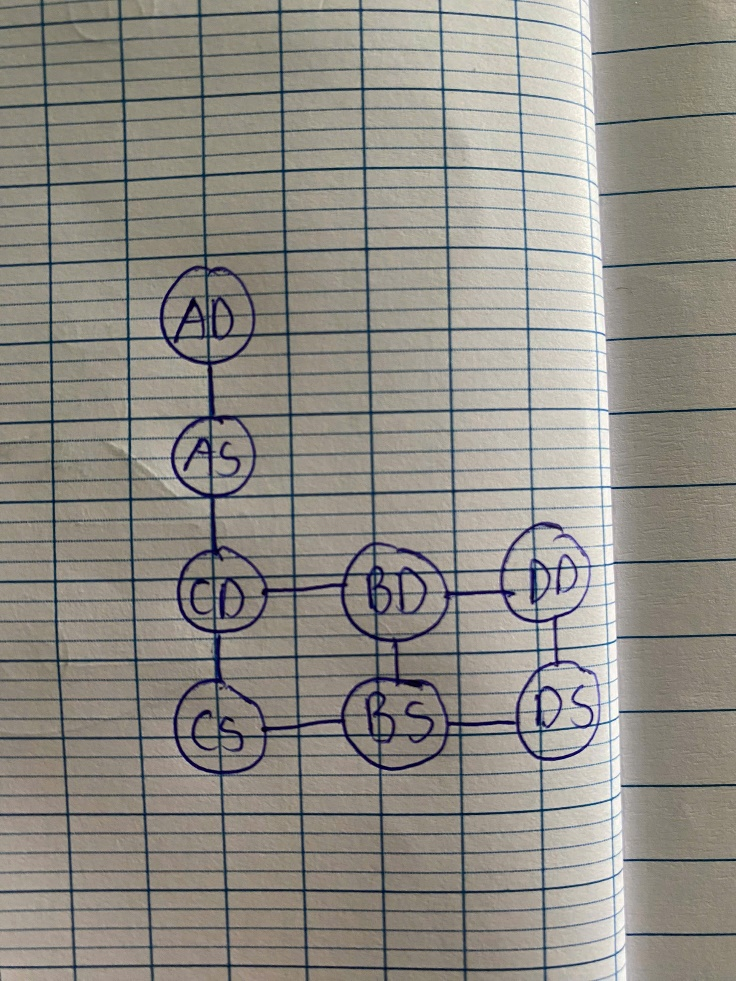 AD
AS
CD BD DD
CS BS DS